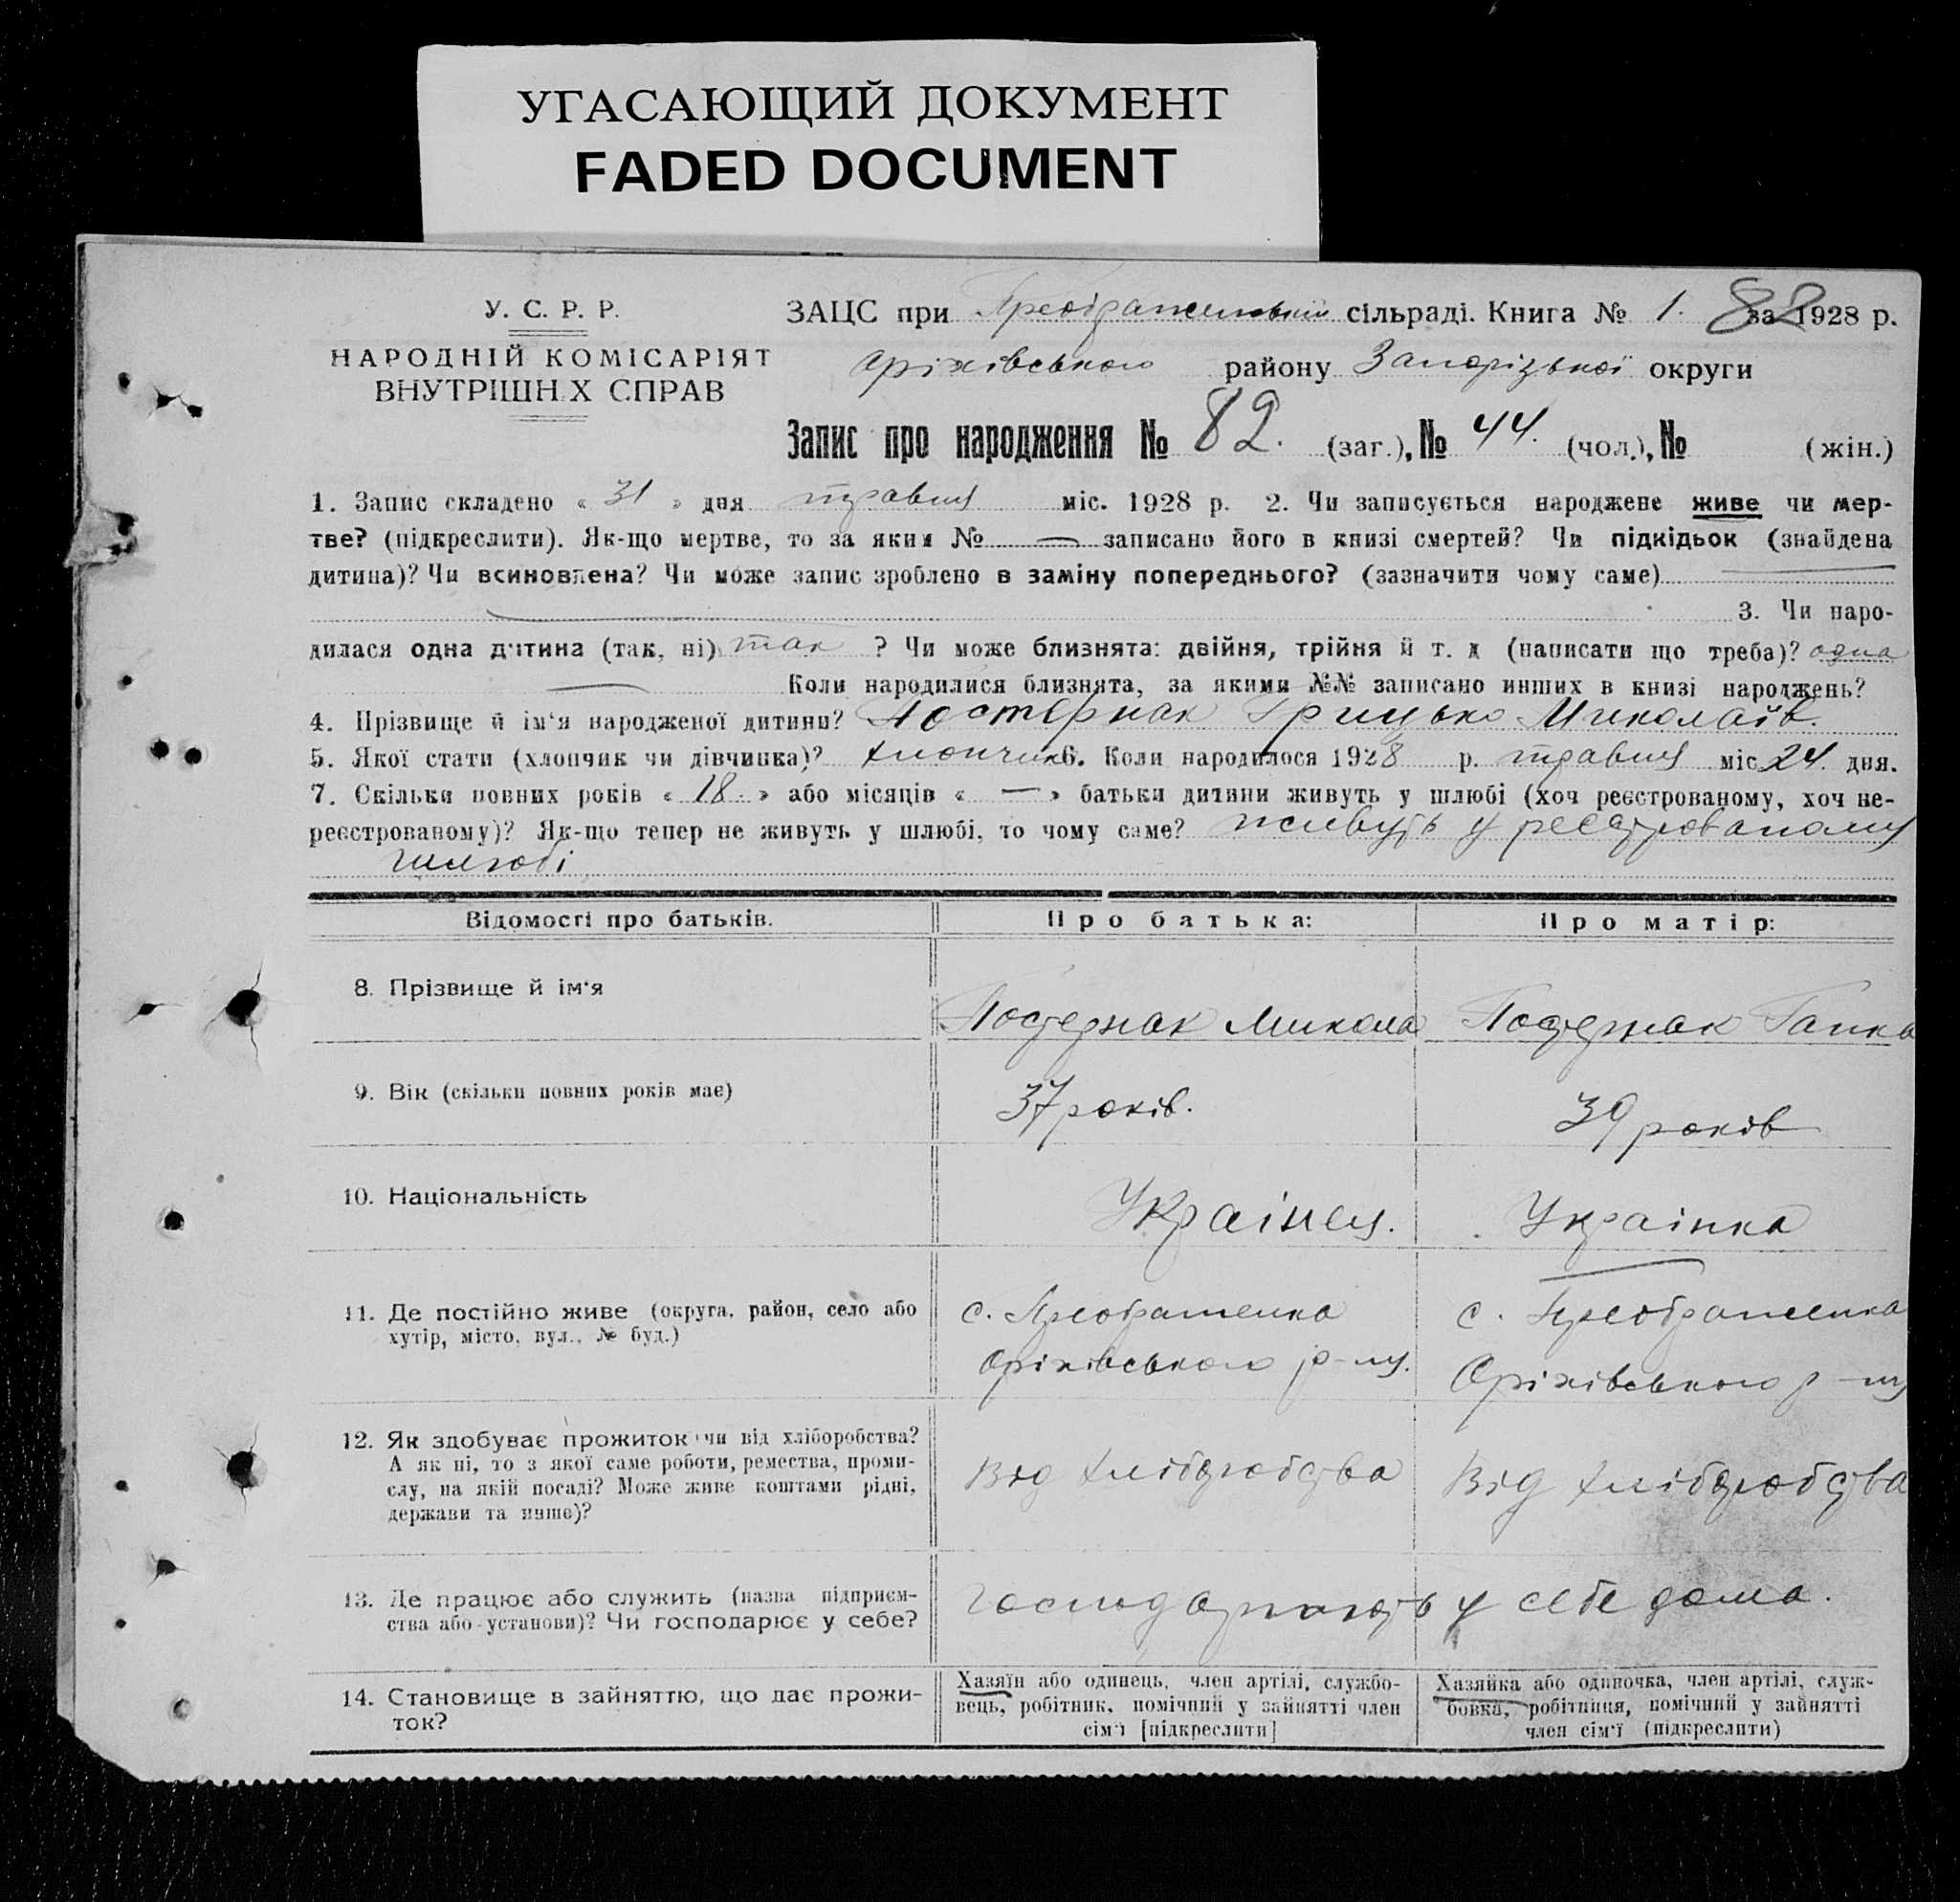 УГАСАЮЩИЙ ДОКУМЕНТ
FADED DOCUMENT
У. С. Р. Р.
НАРОДНІЙ КОМІСАРІЯТ
ВНУТРІШН Х СПРАВ
ЗАЦС при Преображенській сільраді. Книга № 1. 88 за 1928 р.
Оріхівського району Запорізької округи
Запис про народження № 82. (заг.), № 44. (чол.), № (жін.)
1. Запис складено « 31 » дня травня міс. 1928 р. 2. Чи записується народжене живе чи мер-
тве? (підкреслити). Як-що мертве, то за яким № — записано його в книзі смертей? Чи підкідьок (знайдена
дитина)? Чи всиновлена? Чи може запис зроблено в заміну попереднього? (зазначити чому саме) —
3. Чи наро-
дилася одна дитина (так, ні) так ? Чи може близнята: двійня, трійня й т. д (написати що треба)? одна
— Коли народилися близнята, за якими №№ записано инших в книзі народжень?
4. Прізвище й ім'я народженої дитини? Постернак Грицько Миколаїв.
5. Якої стати (хлопчик чи дівчинка)? хлопчик 6. Коли народилося 1928 р. травня міс 24. дня.
7. Скільки повних років « 18 » або місяців « — » батьки дитини живуть у шлюбі (хоч реєстрованому, хоч не-
реєстрованому)? Як-що тепер не живуть у шлюбі, то чому саме? живуть у реєстрованому
шлюбі
Відомості про батьків. Про батька: Про матір:
8. Прізвище й ім'я Постернак Микола Постернак Ганна
9. Вік (скільки повних років має) 37 років. 39 років
10. Національність Українец. Украінка
11. Де постійно живе (округа, район, село або с. Преображенка с. Преображенка
хутір, місто, вул., № буд.) Оріхівського р-ну. Оріхівського р-ну
12. Як здобуває прожиток чи від хліборобства?
А як ні, то з якої саме роботи, ремества, проми- Від хліборобства Від хліборобства
слу, на якій посаді? Може живе коштами рідні,
держави та инше)?
13. Де працює або служить (назва підприєм- господарюють у себе дома.
ства або установи)? Чи господарює у себе?
14. Становище в зайняттю, що дає прожи- Хазяїн або одинець, член артілі, службо- Хазяйка або одиночка, член артілі, служ-
ток? вець, робітник, помічний у зайнятті член бовка, робітниця, помічний у зайнятті
сім'ї [підкреслити] член сім'ї (підкреслити)